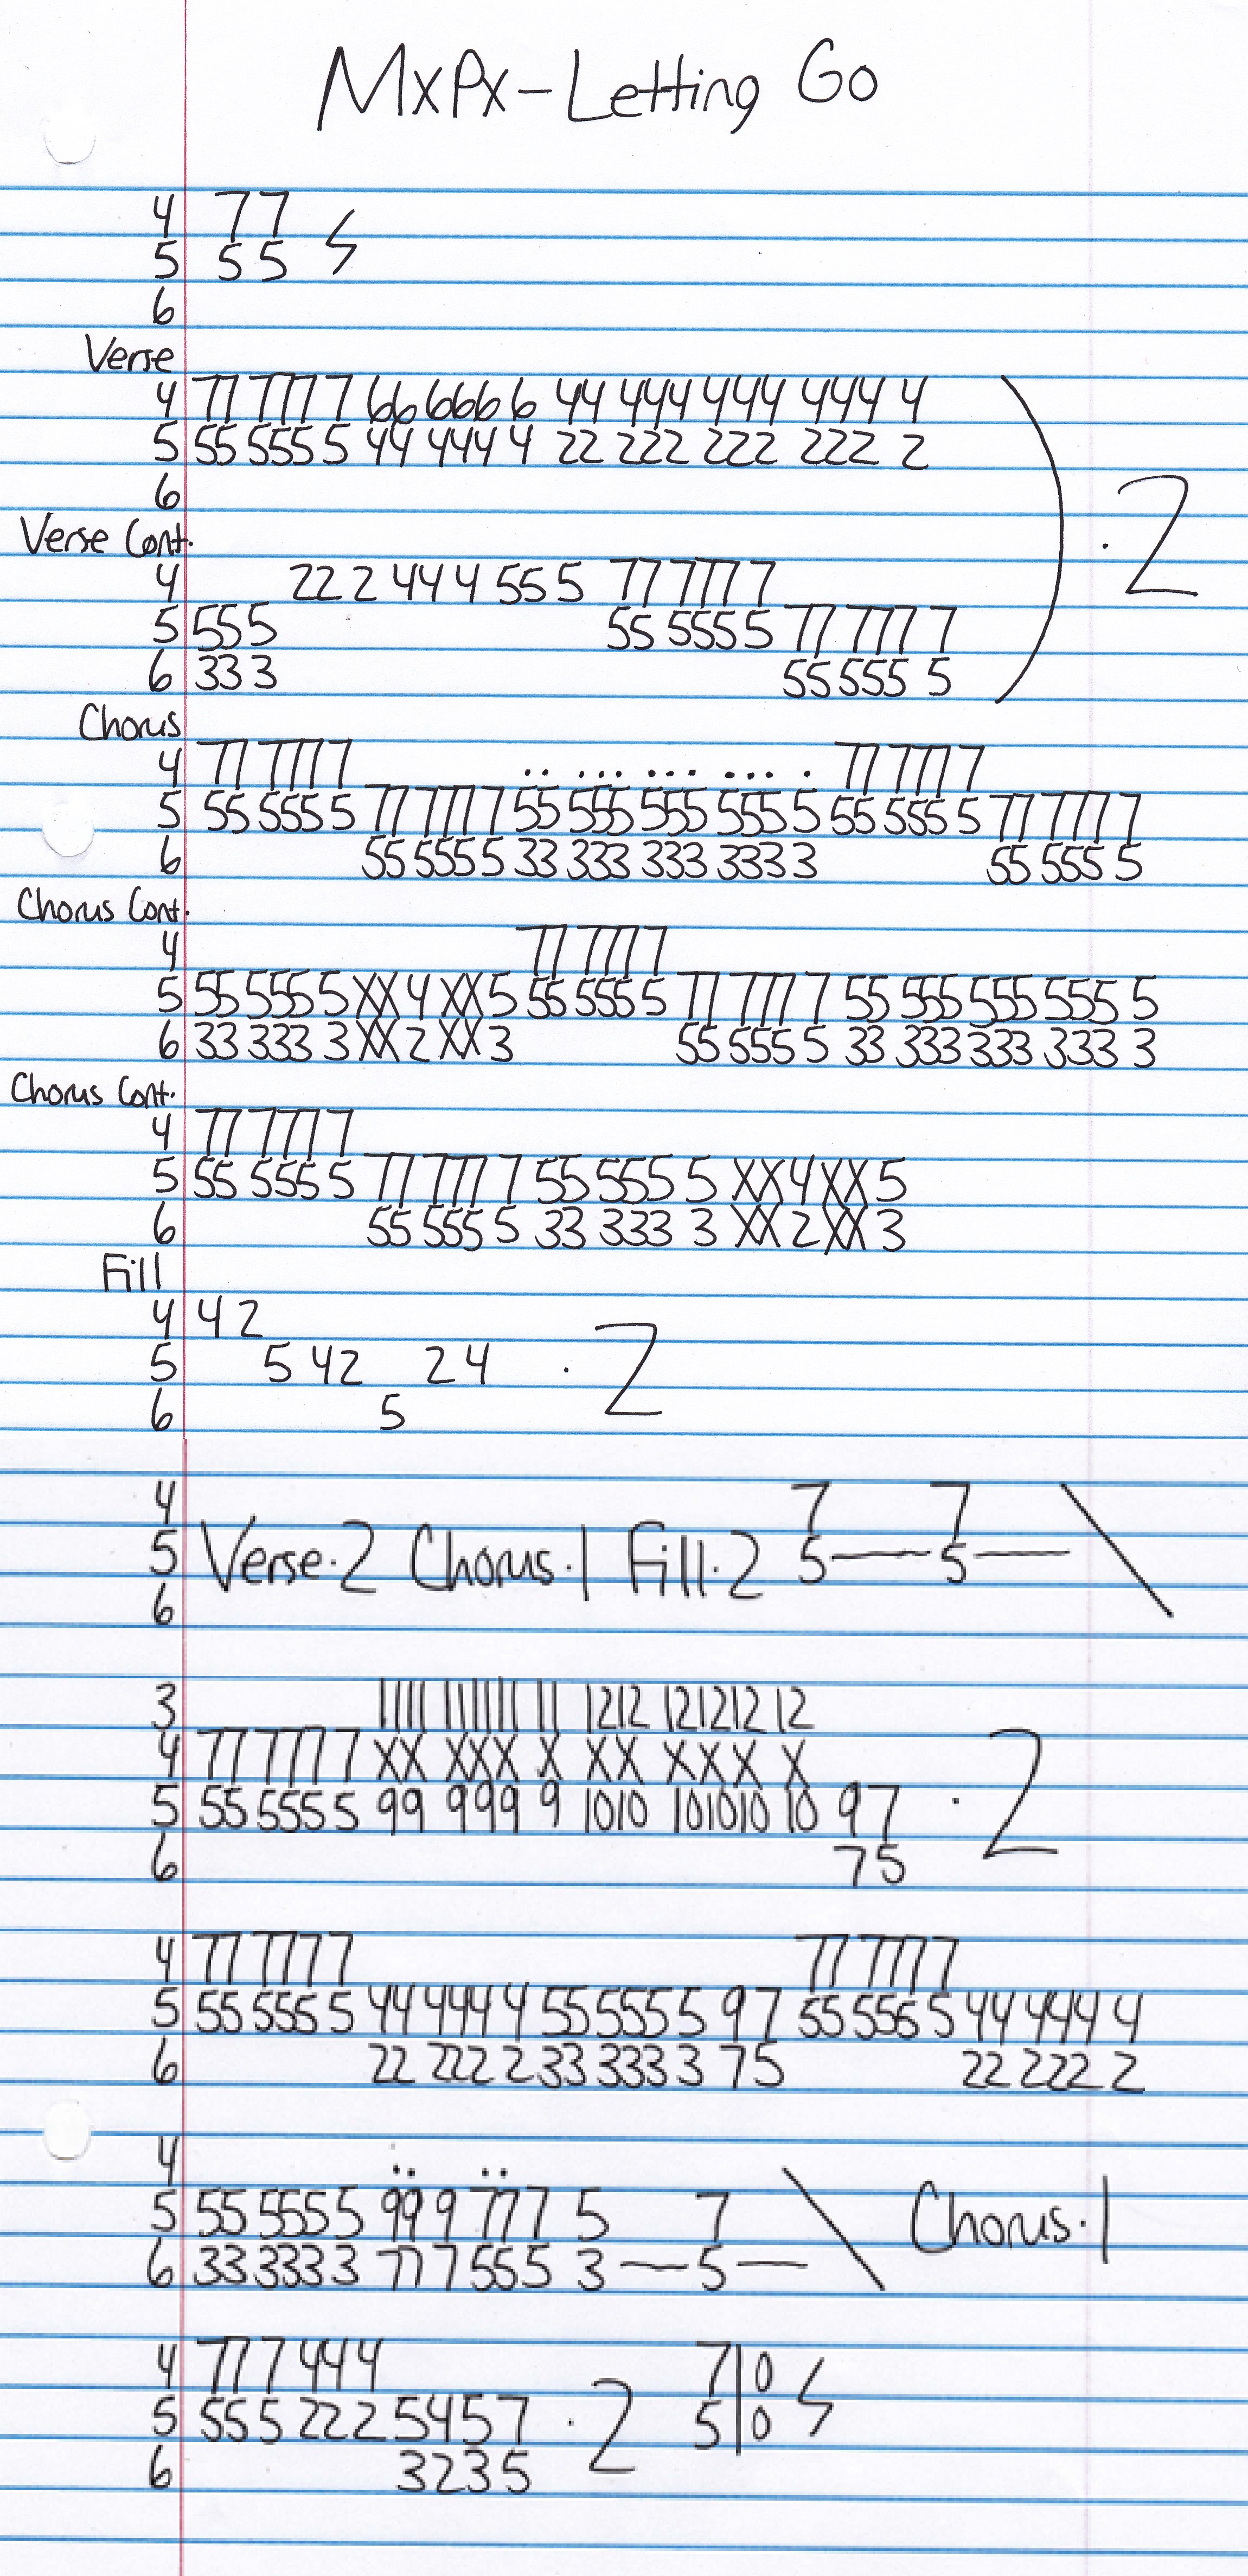 MxPx-Letting Go
4 77
5 55
6
Verse
4 77 777 7 66 666 6 44 444 444 444 4
5 55 555 5 44 444 4 22 222 222 222 2
6
Verse Cont.
4 22 2 44 4 55 5 77 777 7
5 55 5 55 555 5 77 777 7
6 33 3 55 555 5
Chorus
4 77 777 7 .. ... ... ... . 77 777 7
5 55 555 5 77 777 7 55 555 555 555 5 55 555 5 77 777 7
6 55 555 5 33 333 333 333 3 55 555 5
Chorus Cont.
4 77 777 7
5 55 555 5 XX 4 XX 5 55 555 5 77 777 7 55 555 555 555 5
6 33 333 3 XX 2 XX 3 55 555 5 33 333 333 333 3
Chorus Cont.
4 77 777 7
5 55 555 5 77 777 7 55 555 5 XX 4 XX 5
6 55 555 5 33 333 3 XX 2 XX 3
Fill
4 4 2
5 5 4 2 2 4 · 2
6 5
4 7 7
5 Verse·2 Chorus·1 Fill·2 5—5—\
6
3 1111 111111 11 1212 121212 12
4 77 777 7 XX XXX X XX XXX X
5 55 555 5 99 999 9 1010 101010 10 9 7 · 2
6 7 5
4 77 777 7 77 777 7
5 55 555 5 44 444 4 55 555 5 9 7 55 556 5 44 444 4
6 22 222 2 33 333 3 7 5 22 222 2
4 .. ..
5 55 555 5 99 9 77 7 5 7 \ Chorus·1
6 33 333 3 77 7 55 5 3—5—
4 77 7 44 4 7|0
5 55 5 22 2 5 4 5 7 · 2 5|0
6 3 2 3 5